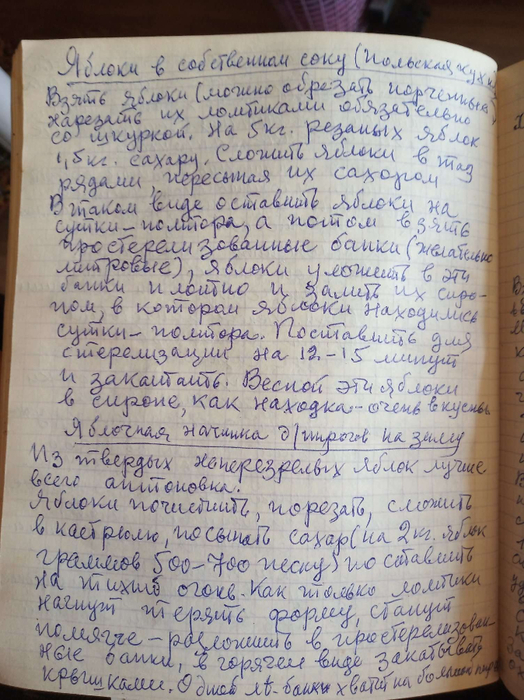 Яблоки в собственном соку (польская кухня)
Взять яблоки (можно обрезать порченные)
нарезать их ломтиками обязательно
со шкуркой. На 5кг. резаных яблок
1,5кг. сахару. Сложить яблоки в таз
рядами, пересыпая их сахаром
В таком виде оставить яблоки на
сутки-полтора, а потом взять
простерелизованные банки (желательно
литровые), яблоки уложить в эти
банки плотно и залить их сиро-
пом, в котором яблоки находились
сутки-полтора. Поставить для
стерелизации на 12-15 минут
и закатать. Весной эти яблоки
в сиропе, как находка-очень вкусны
Яблочная начинка д/пирогов на зиму
Из твердых неперезрелых яблок лучше
всего антоновка.
Яблоки почистить, порезать, сложить
в кастрюлю, посыпать сахар (на 2кг. яблок
граммов 500-700 песку) поставить
на тихий огонь. Как только ломтики
начнут терять форму, станут
помягче-разложить в простерелизован-
ные банки, в горячем виде закатывать
крышками. Одной банки хватит на большой